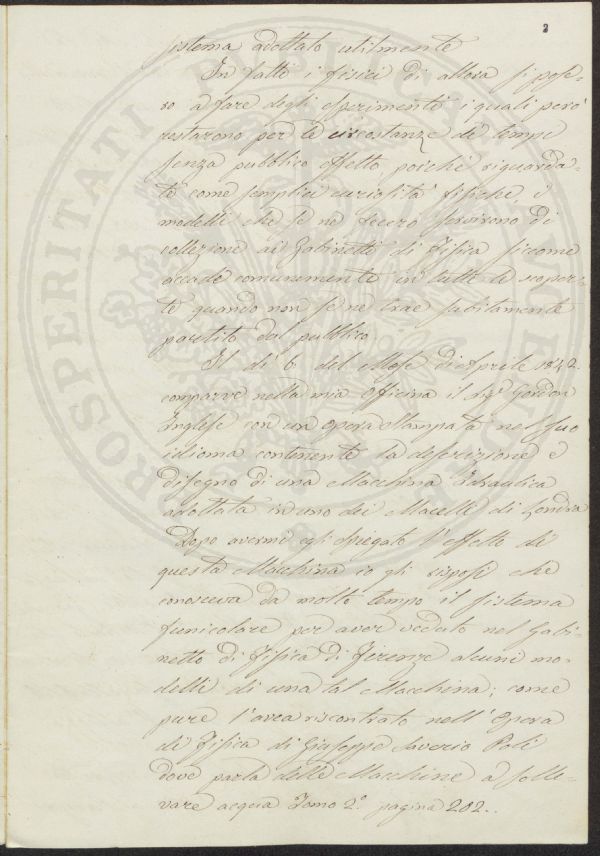 3
sistema adottato utilmente
In fatti i fisici di allora si pose-
ro a fare degli esperimenti i quali però
restarono per le circostanze de' tempi
senza pubblico effetto, poichè riguarda-
te come semplici curiosità fisiche, i
modelli che se ne fecero servirono di
collezione ai Gabinetti di Fisica siccome
accade comunemente in tutte le scoper-
te quando non se ne trae subitamente
partito dal pubblico.
Il dì 6 del Mese di Aprile 1842.
comparve nella mia Officina il Sigr. Gordon
Inglese con un opera stampata nel suo
idioma contenente la descrizione e
disegno di una Macchina Idraulica
adottata in uno dei Macelli di Londra
Dopo avermi egli spiegato l'effetto di
questa Macchina io gli risposi che
conosceva da molto tempo il sistema
funicolare per aver veduto nel Gabi-
netto di Fisica di Firenze alcuni mo-
delli di una tal Macchina; come
pure l'avea riscontrato nell'Opera
di Fisica di Giuseppe Saverio Poli
dove parla delle Macchine a solle-
vare acqua Tomo 2.° pagina 202..
PROSPERITATI PUBLICAE AUGENDAE